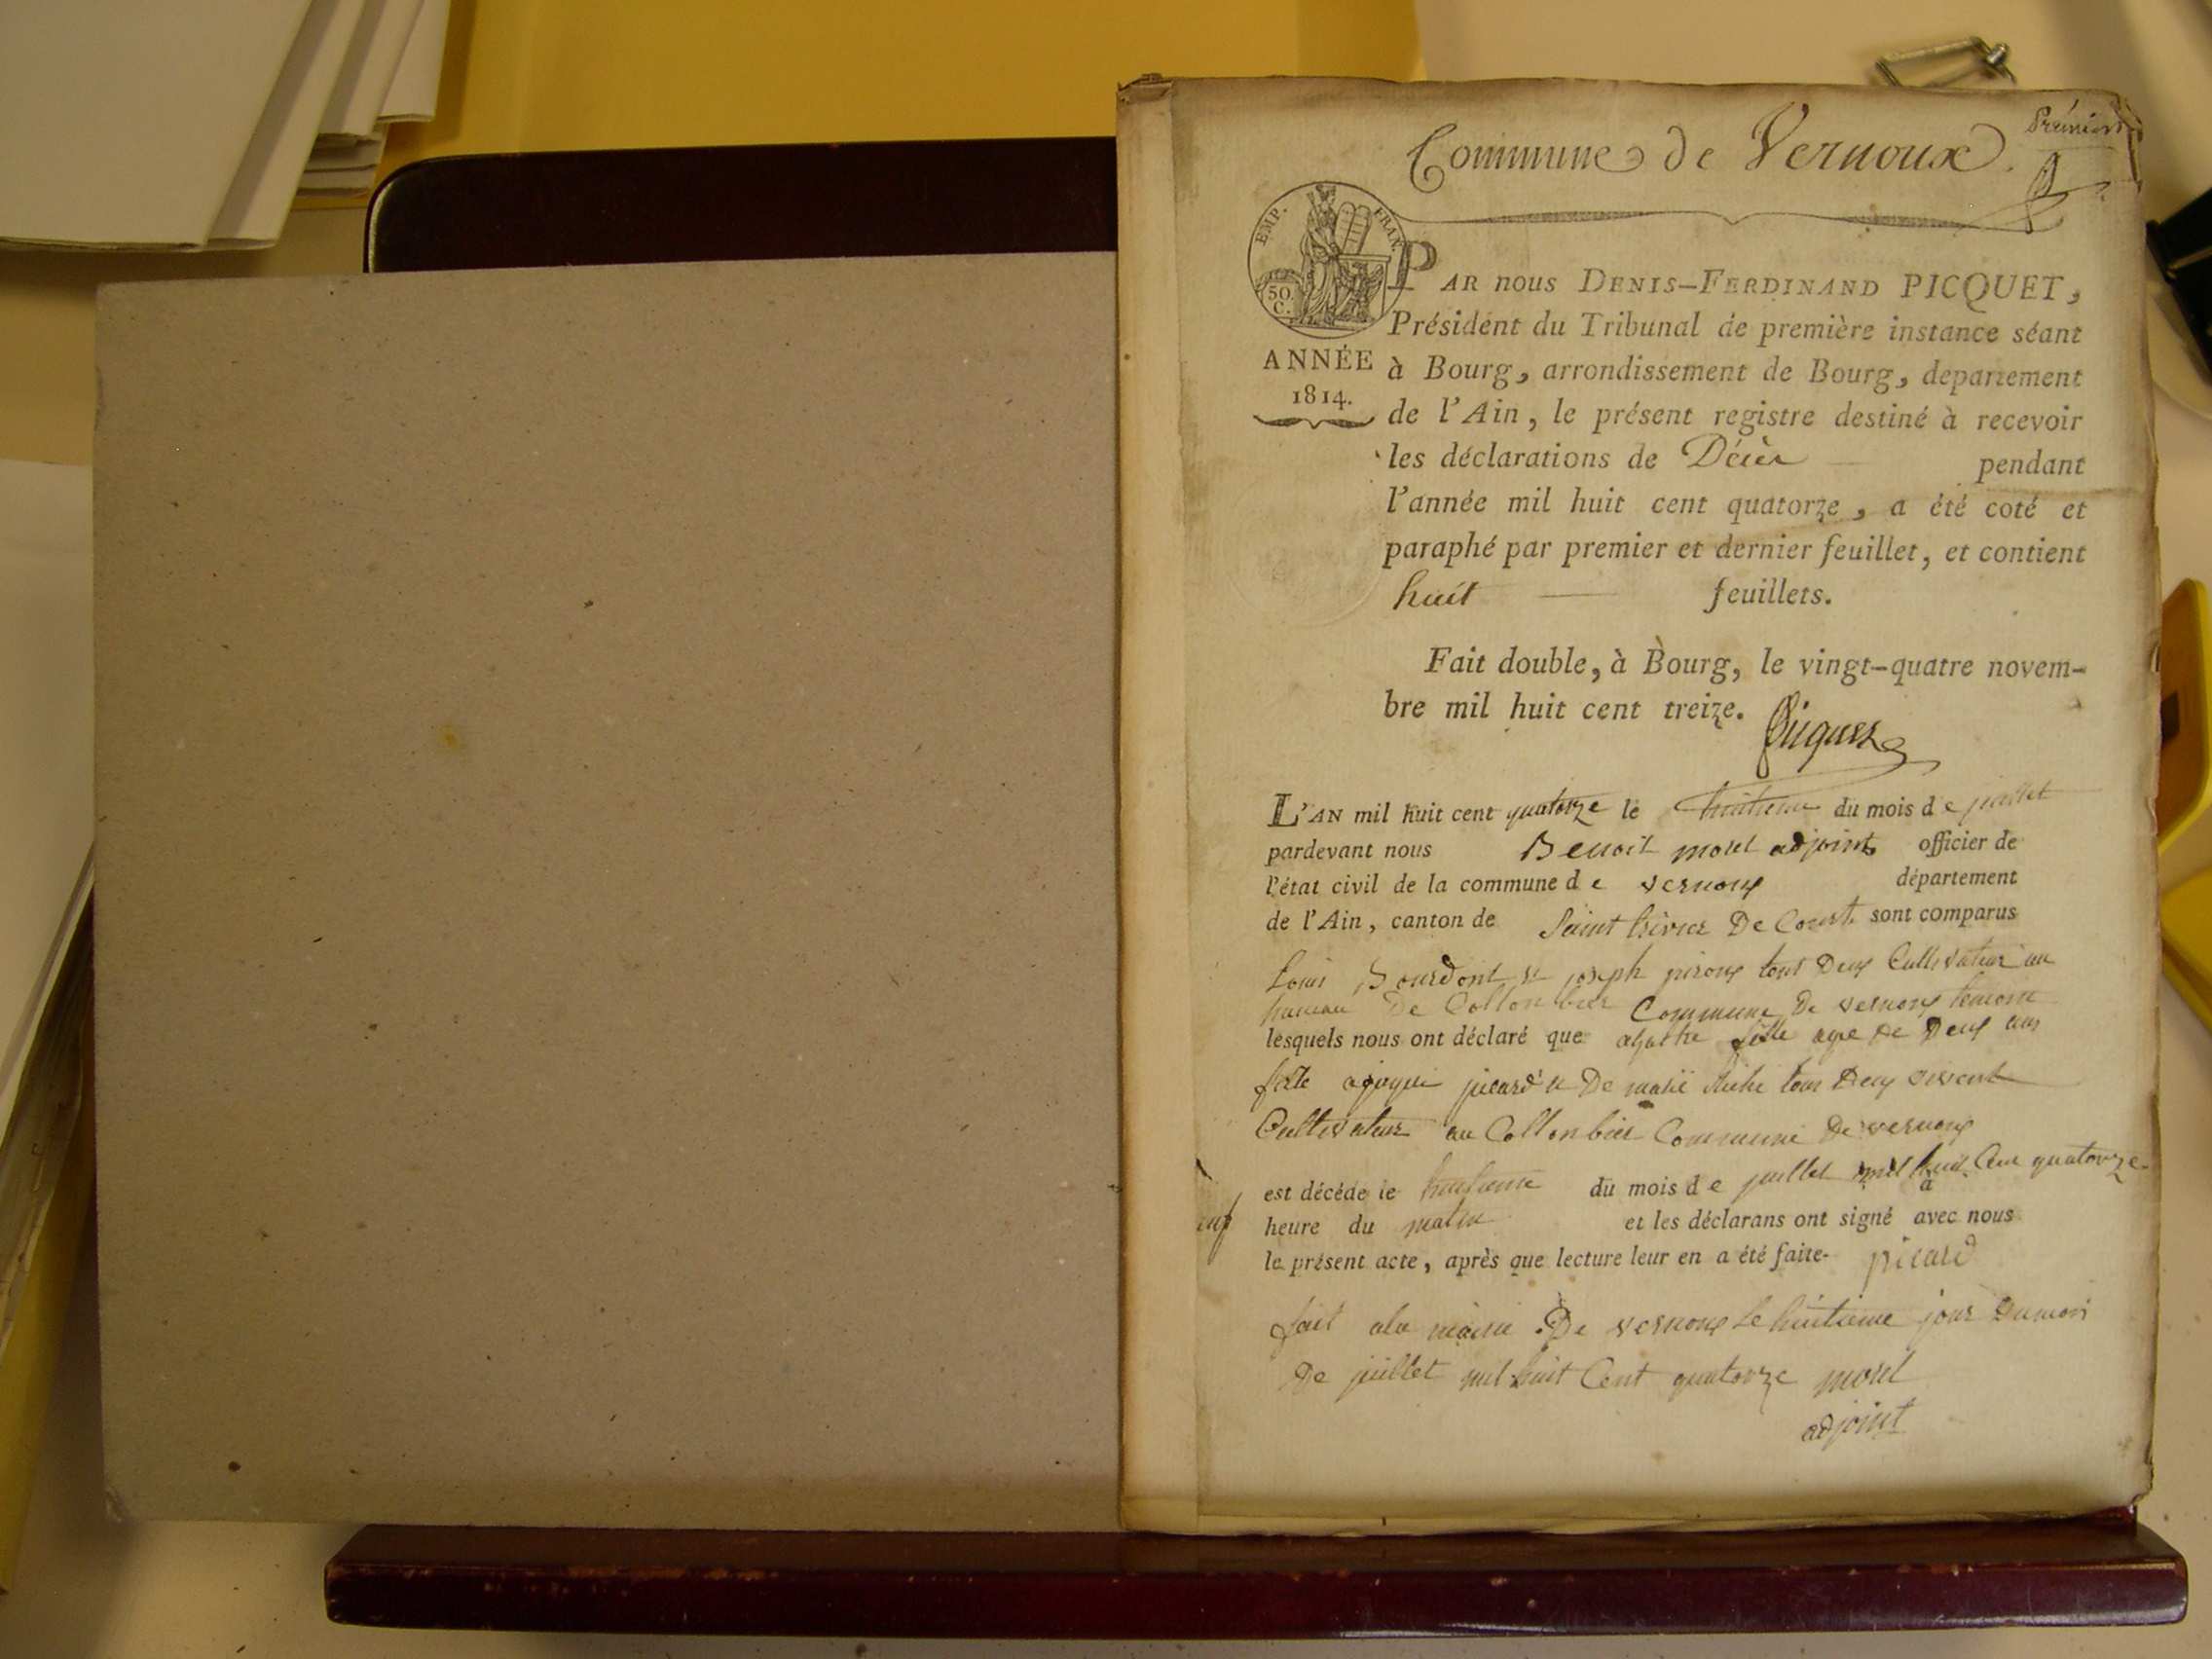 Commune de Vernoux.
EMP. FRAN.
50. C.
ANNÉE
1814.
PAR nous DENIS-FERDINAND PICQUET,
Président du Tribunal de première instance séant
à Bourg, arrondissement de Bourg, departement
de l'Ain, le présent registre destiné à recevoir
les déclarations de Décès pendant
l'année mil huit cent quatorze, a été coté et
paraphé par premier et dernier feuillet, et contient
huit feuillets.
Fait double, à Bourg, le vingt-quatre novem-
bre mil huit cent treize.
Picquet
L'AN mil huit cent quatorze le huitieme du mois de juillet
pardevant nous Benoit morel adjoint officier de
l'état civil de la commune de vernoux département
de l'Ain, canton de Saint trivier De Courte sont comparus
Louis Bourdont et joseph piroux tout Deux Cultivateur au
hameau De Collonbier Commune De vernoux temoin
lesquels nous ont déclaré que fille age de Deux ans
fille picard et De marie tous Deux vivent
Cultivateur au Collonbier Commune De vernoux
est décédé le huitieme du mois de juillet mil huit Cent quatorze à
heure du matin et les déclarans ont signé avec nous
le présent acte, après que lecture leur en a été faite. picard
fait ala mairie De vernoux le huitieme jour Dumois
De juillet mil huit Cent quatorze morel
adjoint